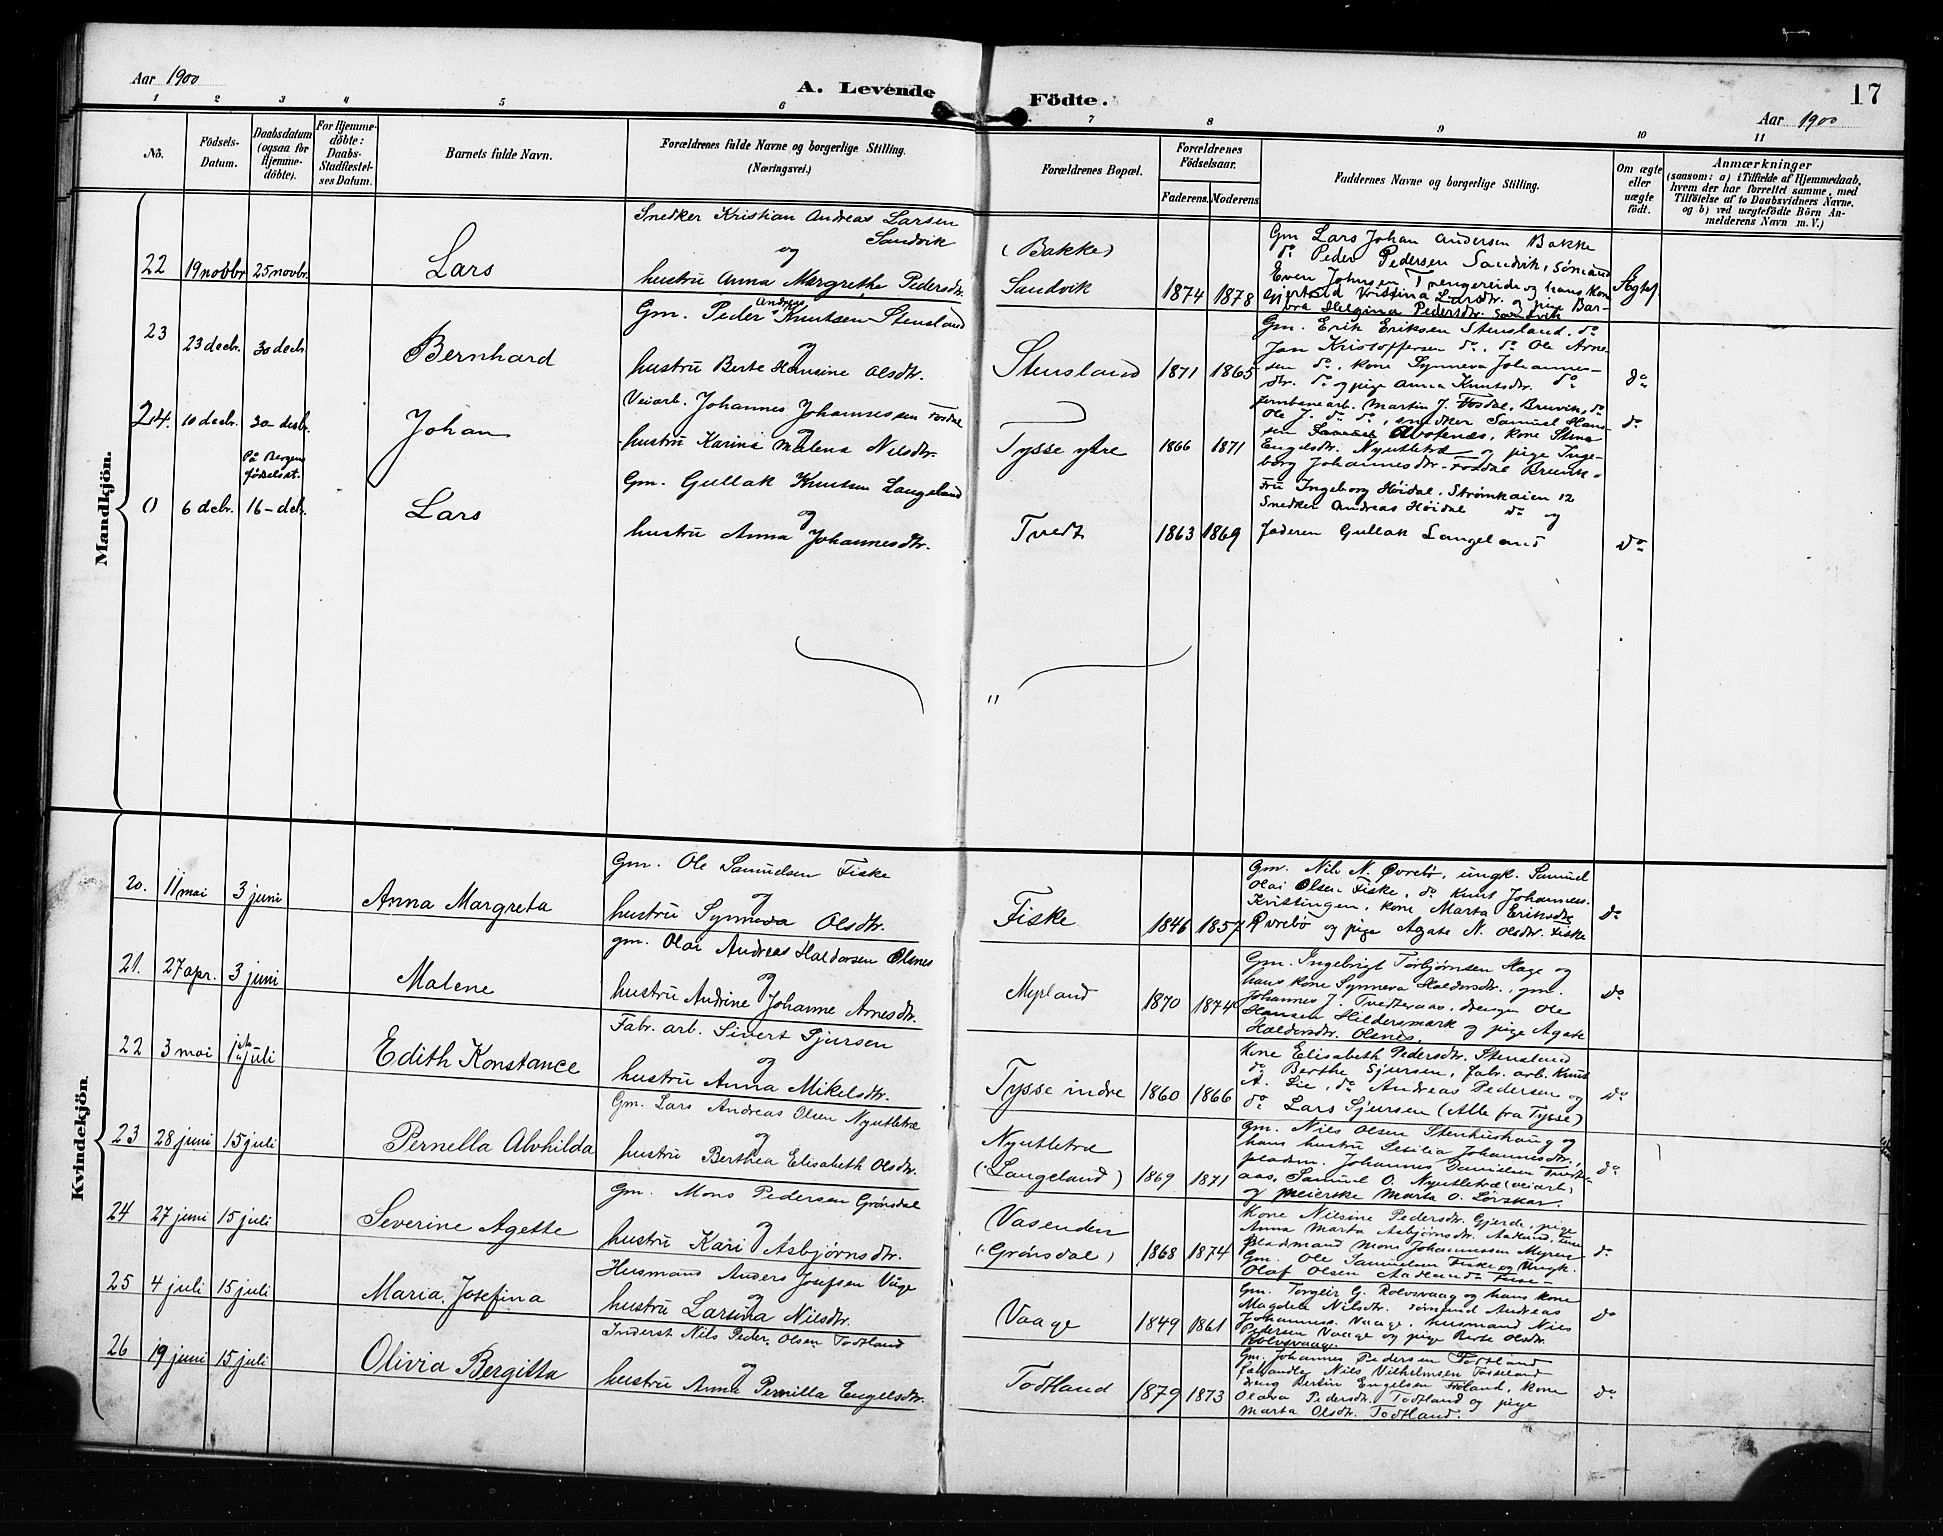 Aar 1900
A. Levende Födte.
17
Aar 1900
1 2 3 4 5 6 7 8 9 10 11
No.
Födsels-Datum.
Daabsdatum (ogsaa for Hjemmedöbte).
For Hjemmedöbte: Daabs-Stadfæstelses Datum.
Barnets fulde Navn.
Forældrenes fulde Navne og borgerlige Stilling. (Næringsvei.)
Forældrenes Bopæl.
Forældrenes Födselsaar.
Faderens. Moderens.
Faddernes Navne og borgerlige Stilling.
Om ægte eller uægte födt.
Anmærkninger
(saasom: a) i Tilfælde af Hjemmedaab,
hvem der har forrettet samme, med
Tilföielse af to Daabsvidners Navne.
og b) ved uægtefödte Börn An-
melderens Navn m. V.)
Mandkjön.
22 19 novbr 25 novbr. Lars
Snedker Kristian Andreas Larsen
Sandvik
og
hustru Anna Margrethe Pedersdtr.
(Bakke)
Sandvik 1874 1878
Gm Lars Johan Andersen Bakke
do Peder Pedersen Sandvik, Sömand
Even Johnsen Trengereide og hans kone
Gjertrud Kristina Larsdtr. og pige Bar-
bra Helgina Pedersdtr. Sandvik
Ægtef.
23 23 decbr. 30 decbr. Bernhard
Gm. Peder Andreas Knutsen Stensland
og
hustru Berte Hansine Olsdtr.
Stensland 1871 1865
Gm. Erik Eriksen Stensland, do
Jan Kristoffersen do, do Ole Arne-
sen do, kone Synneva Johannes-
dtr. do og pige Anna Knutsdtr. do
do
24. 10 decbr. 30 decbr. Johan
Veiarb. Johannes Johannessen Fosdal
og
hustru Karina Malena Nilsdtr.
Tysse ytre 1866 1871
Jernbanearb. Martin J. Fosdal, Bruvik, do
Ole J. do do, snedker Samuel Han-
sen kone Stina
Engelsdtr. Nyutletræ og pige Inge-
borg Johannesdtr. Fosdal Bruvik.
do
På Bergens
födselsst.
0 6 decbr. 16 decbr. Lars
Gm. Gullak Knutsen Langeland
og
hustru Anna Johannesdtr.
Tvedt 1863 1869
Fru Ingeborg Höidal, Strömkaien 12
Snedker Andreas Höidal do og
faderen Gullak Langeland
do
"
Kvindekjön.
20. 11 mai 3 juni Anna Margreta
Gm. Ole Samuelsen Fiske
og
hustru Synneva Olsdtr.
Fiske 1846 1857
Gm. Nils N. Övrebö, ungk. Samuel
Olai Olsen Fiske, do Knut Johannes.
Kvittingen, kone Marta Eriksdtr
Övrebö og pige Agate N. Olsdtr. Fiske
do
21. 27 apr. 3 juni Malene
gm. Olai Andreas Haldorsen Olsnes
og
hustru Andrine Johanne Arnesdtr.
Myrland 1870 1874
Gm. Ingebrigt Torbjörnsen Hage og
hans kone Synneva Haldorsdtr., gm.
Johannes J. Tvedteraas, dreng Ole
Hansen Hildersmark og pige Agate
Haldorsdtr. Olsnes.
do
22 3 mai 1ste juli Edith Konstance
Fabr. arb. Sivert Sjursen
og
hustru Anna Mikelsdtr.
Tysse indre 1860 1866
Kone Elisabeth Pedersdtr. Stensland
do Berthe Sjursen, fabr. arb. Knut
A. Lie, do Andreas Pedersen og
do Lars Sjursen (Alle fra Tysse)
do
23 28 juni 15 juli Pernella Alvhilda
Gm. Lars Andreas Olsen Nyutletræ
og
hustru Berthea Elisabeth Olsdtr.
Nyutletræ
(Langeland) 1869 1871
Gm. Nils Olsen Stenhushaug og
hans hustru Cesilia Johannesdtr.,
pladsm. Johannes Danielsen Tvedter-
aas, Samuel O. Nyutletræ (veiarb.)
og meierske Marta O. Lövskar.
do
24 27 juni 15 juli Severine Agette
Gm. Mons Pedersen Grönsdal
og
hustru Kari Asbjörnsdtr.
Vasenden
(Grönsdal) 1868 1874
Kone Nilsine Pedersdtr. Gjerde, pige
Anna Marta Asbjörnsdtr. Aakland, Fuse
pladsmand Mons Johannessen Myren
Gm. Ole Samuelsen Fiske og Ungk.
Olaf Olsen Aadland Fuse
do
25 4 juli 15 juli Maria Josefina
Husmand Anders Josefsen Våge
og
hustru Larina Nilsdtr.
Vaage 1849 1861
Gm. Torgeir G. Rolvsvaag og hans kone
Magdela Nilsdtr. sömand Andreas
Johanness. Vaage, husmand Nils
Pedersen Vaage og pige Berte Olsdtr.
Rolvsvaag.
do
26 19 juni 15 juli Olivia Bergitta
Inderst Nils Peder Olsen Todtland
og
hustru Anna Pernilla Engelsdtr.
Todtland 1879 1873
Gm. Johannes Pedersen Todtland
Nils Vilhelmsen
dreng Bertin Engelsen Fröland, kone
Olava Pedersdtr. Todtland og pige
Marta Olsdtr. Todtland.
do